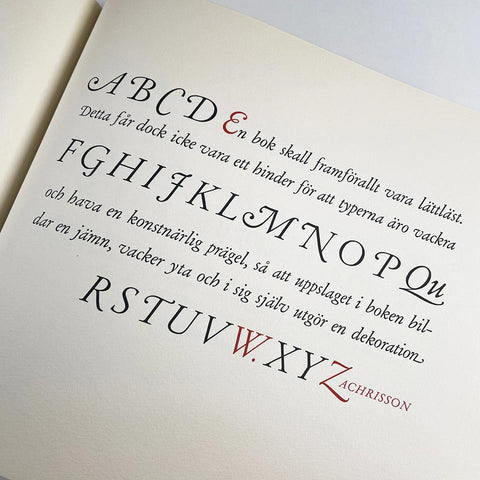 ABCD En bok skall framförallt vara lättläst.
Detta får dock icke vara ett hinder för att typerna äro vackra
FGHIJKLMNOPQu
och hava en konstnärlig prägel, så att uppslaget i boken bil-
dar en jämn, vacker yta och i sig själv utgör en dekoration.
RSTUVW. XYZACHRISSON